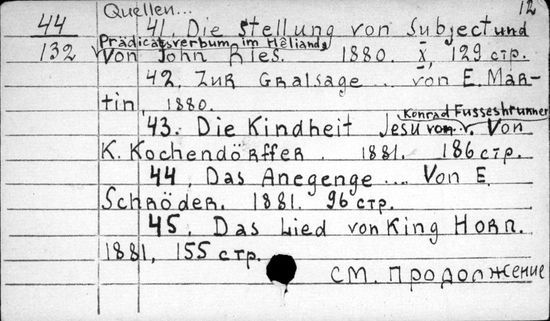 Quellen... 12
44 41. Die Stellung von Subject und
Prädicatsverbum im Hêliand
132 Von John Ries. 1880. X, 129 стр.
42. Zur Gralsage ... von E. Mar-
tin, 1880.
Konrad Fussesbrunner
43. Die Kindheit Jesu von v. Von
K. Kochendörffer. 1881. 186 стр.
44. Das Anegenge .... Von E.
Schröder. 1881. 96 стр.
45. Das Lied von King Horn.
1881, 155 стр.
см. продолжение